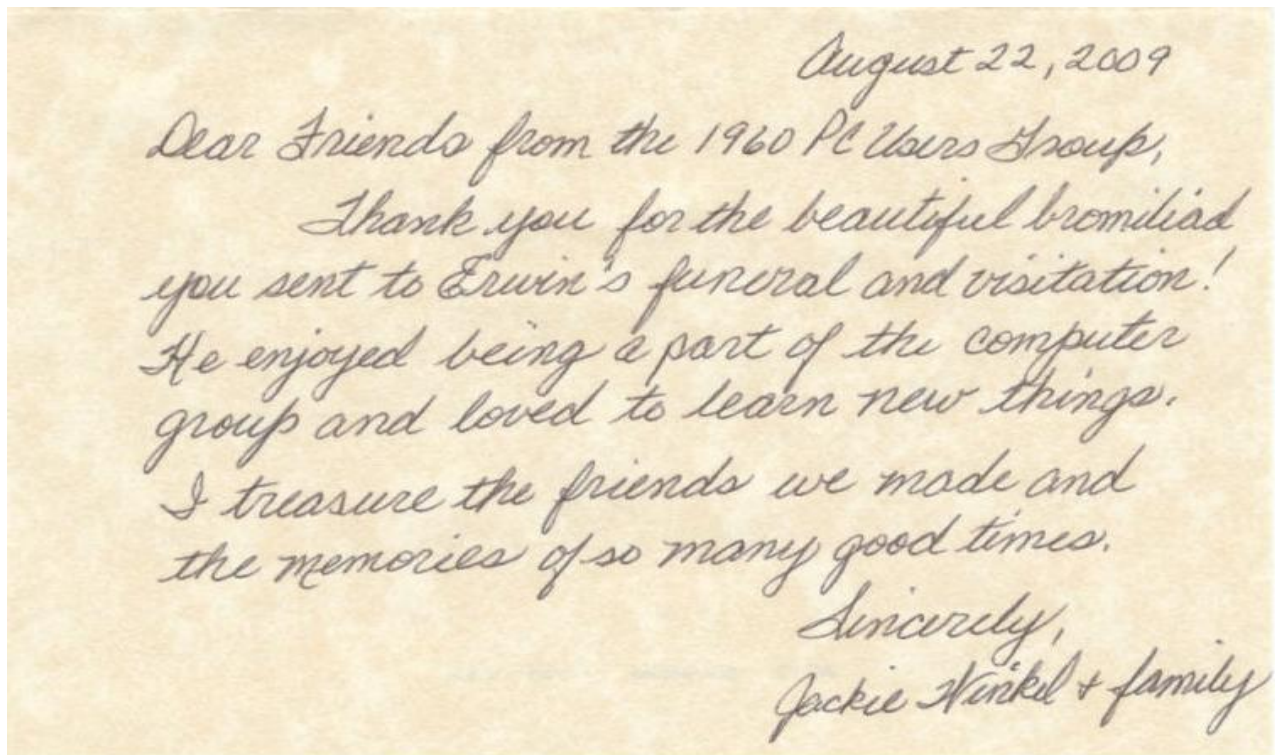 August 22, 2009
Dear Friends from the 1960 PC Users Group,
Thank you for the beautiful bromiliad
you sent to Erwin's funeral and visitation!
He enjoyed being a part of the computer
group and loved to learn new things.
I treasure the friends we made and
the memories of so many good times.
Sincerely,
Jackie Winkel + family